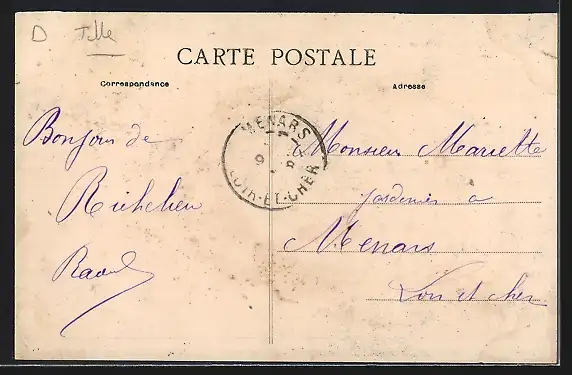 D Tlle
CARTE POSTALE
Correspondance
Adresse
Bonjour de
Richelieu
Raoul
MENARS
LOIR-ET-CHER
Monsieur Mariette
Jardinier a
Menars
Loir et cher